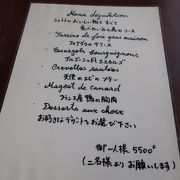 Menu dégustation
おいしい物を すべて
食べたい方の為の コース
・Terrine de foie gras maison
フォアグラの テリーヌ
・Escargots bourguignons
ブルゴーニュ風 エスカルゴ
・Crevettes sautées
天使のエビの ソテー
・Magret de canard
フランス産 鴨の胸肉
・Desserts aux choix
お好きなデザートを お選び下さい
御一人様 5500
(二名様より お願いします)